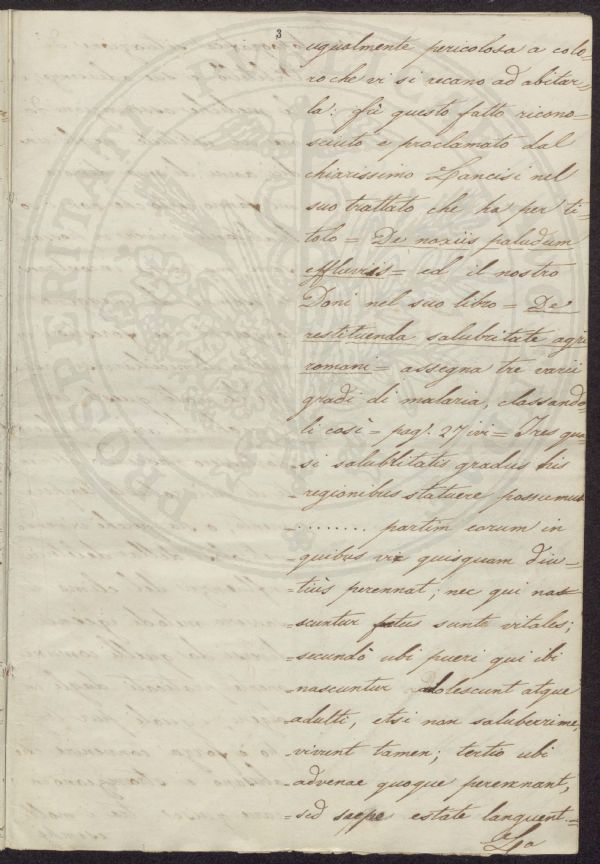 3
ugualmente pericolosa a colo-
ro che vi si recano ad abitar-
la. Fù questo fatto ricono-
sciuto e proclamato dal
chiarissimo Lancisi nel
suo trattato che ha per ti-
tolo = De noxiis paludum
effluviis = ed il nostro
Doni nel suo libro = De
restituenda salubritate agri
romani = assegna tre varii
gradi di malaria, classando-
li così = pag. 27 ivi = Tres qua-
si salubritatis gradus his
= regionibus statuere possumus
= ........ partim eorum in
= quibus vix quisquam diu-
= tiùs perennat; nec qui na-
= scuntur fetus sunt vitales;
= secundò ubi pueri qui ibi
= nascuntur adolescunt atque
= adulti, etsi non saluberrime,
= vivunt tamen; tertio ubi
= advenae quoque perennant,
= sed saepe estate languent =
PROSPERITATI PUBLICAE